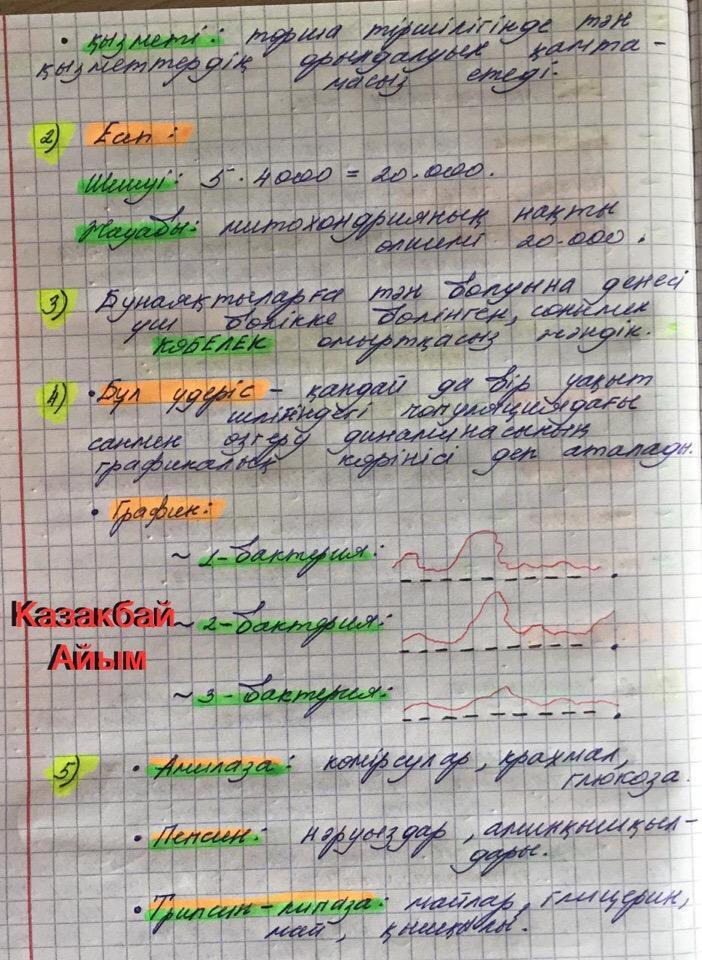 • қызметі: торша тіршілігінде тән
қызметтердің орындалуын қамта-
масыз етеді.
2) Есеп:
Шешуі: 5 · 4000 = 20.000.
Жауабы: митохондрияның нақты
өлшемі 20.000.
3) Бунаяқтыларға тән болуына денесі
үш бөлікке бөлінген, сонымен
КӨБЕЛЕК омыртқасыз жәндік.
4) • Бұл үдеріс – қандай да бір уақыт
ішіндегі популяциядағы
санмен өзгеру динамикасының
графикалық көрінісі деп аталады.
• График:
~ 1-бактерия:
~ 2-бактерия:
~ 3-бактерия:
Казакбай
Айым
5) • Амилаза: көмірсулар, крахмал,
глюкоза.
• Пепсин: нәруыздар, аминқышқыл-
дары.
• Трипсин-липаза: майлар, глицерин,
май, қышқылы.